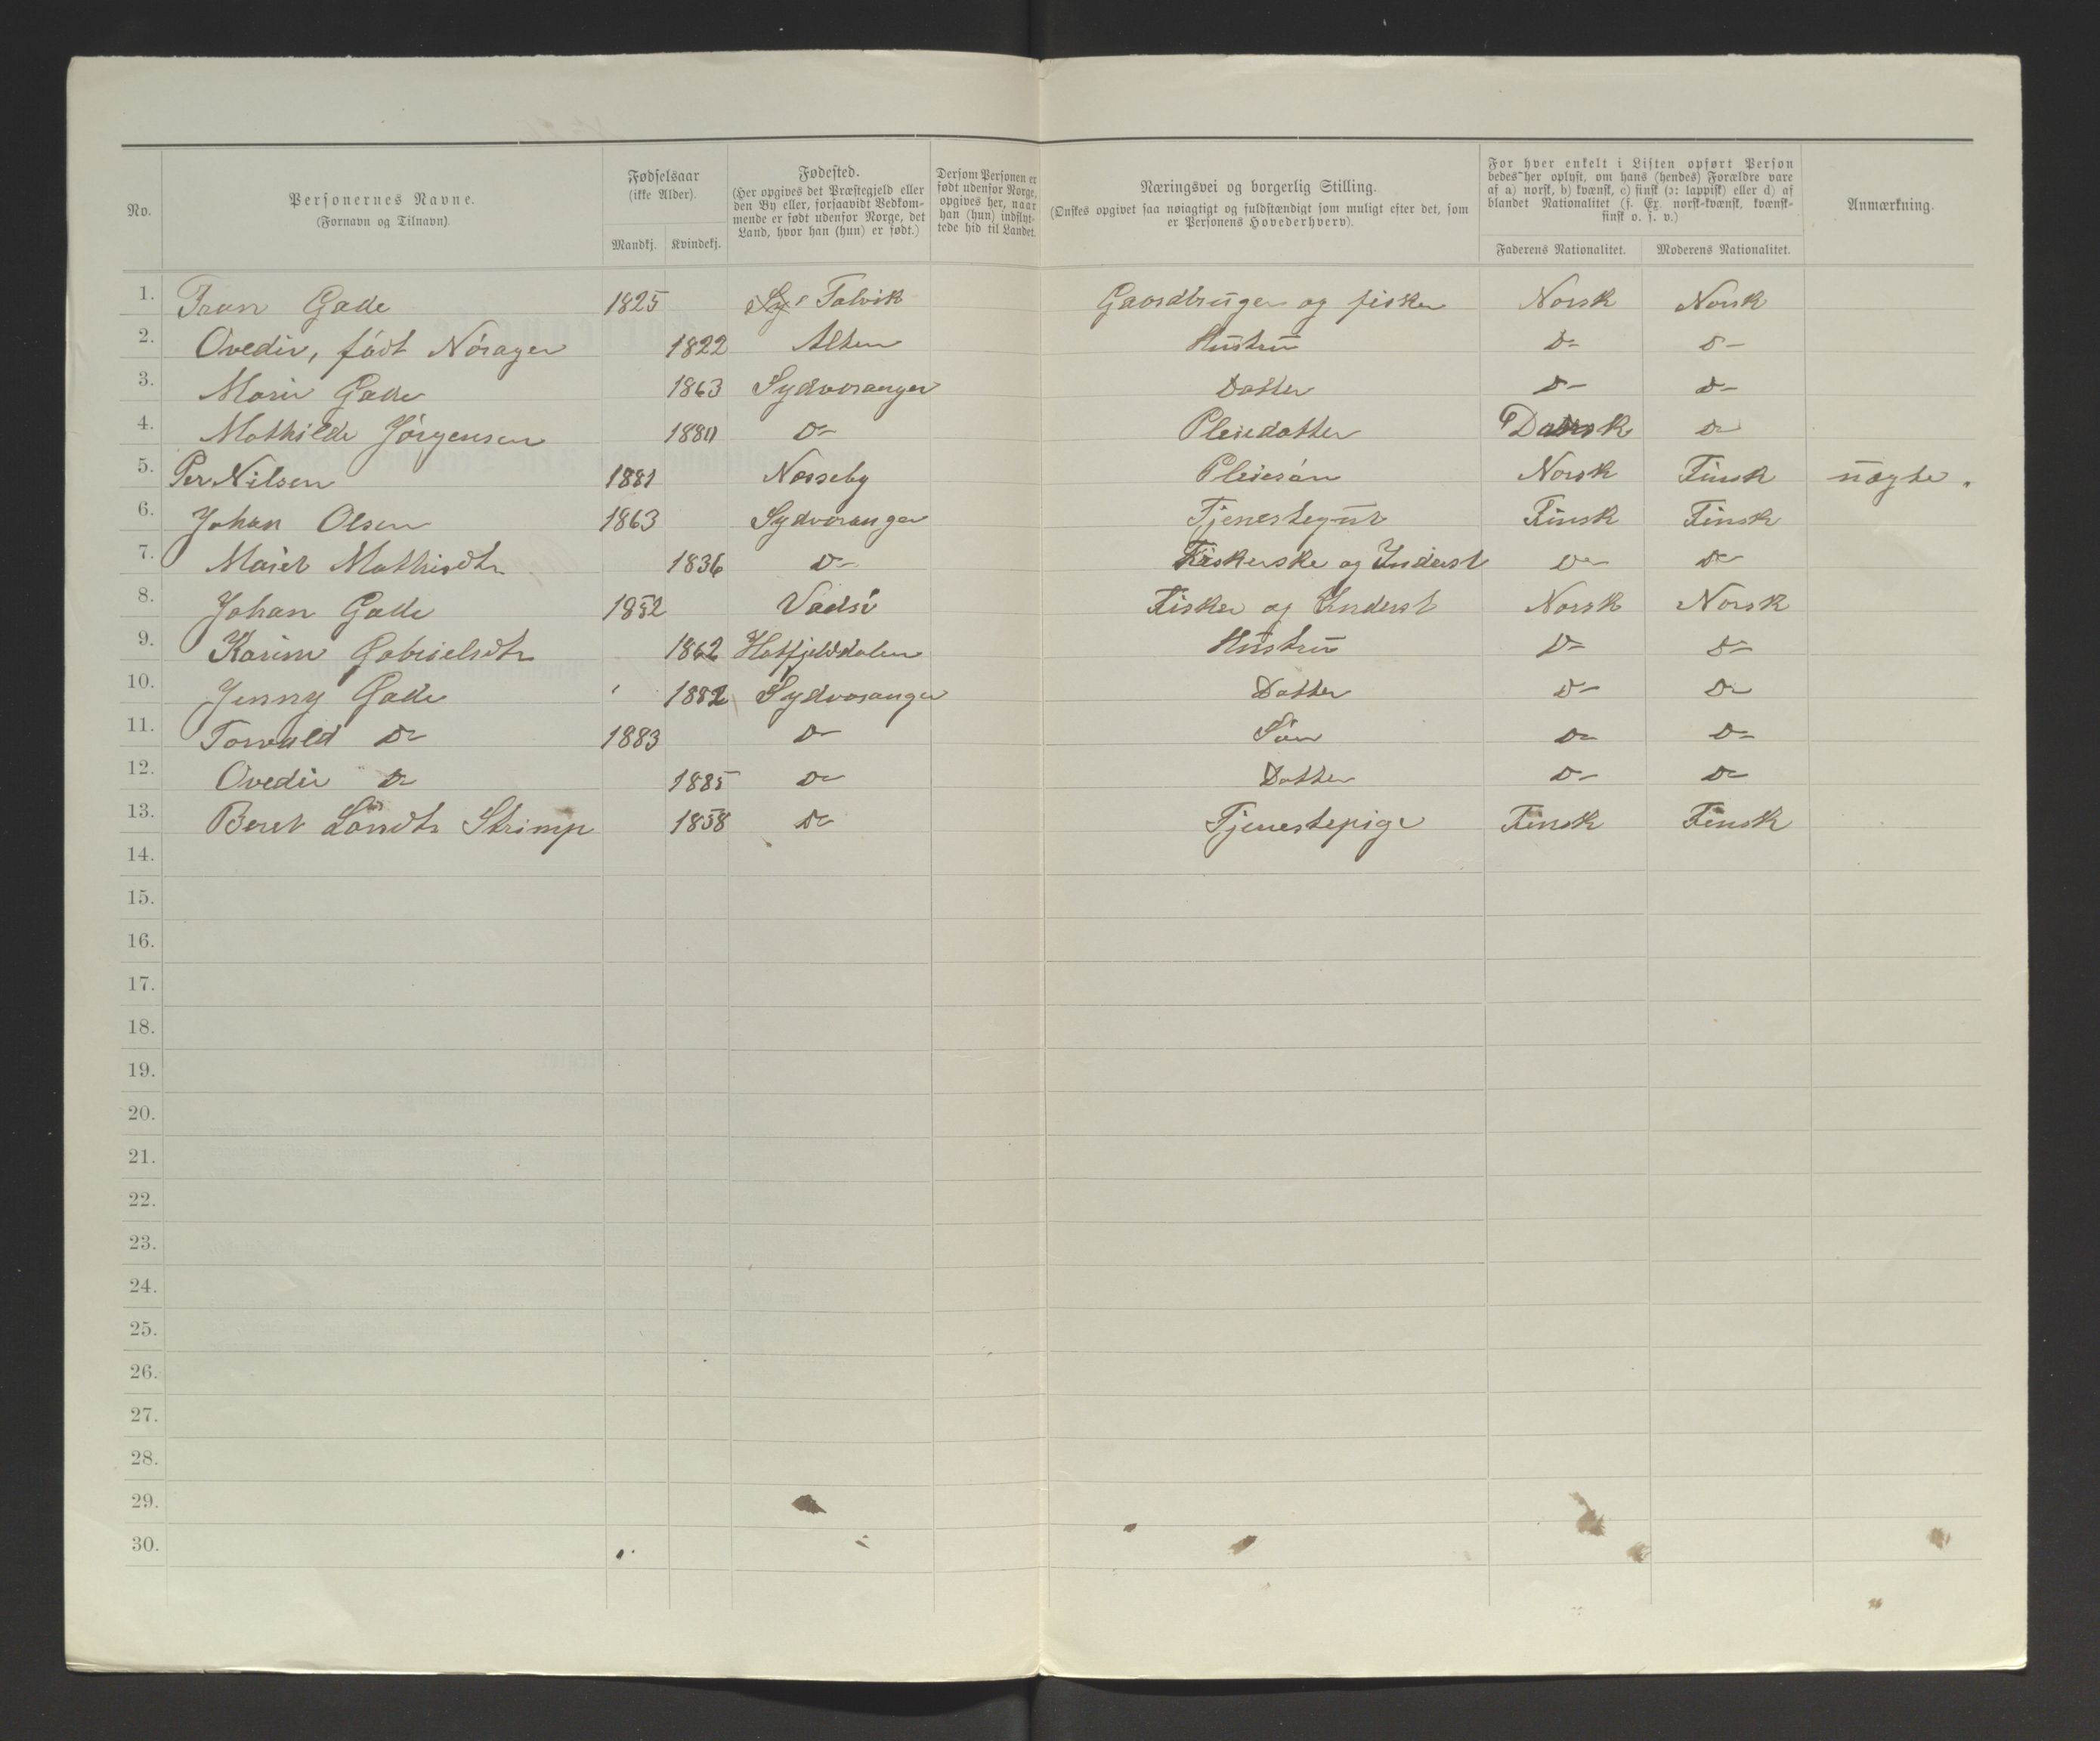 No.
Personernes Navne.
(Fornavn og Tilnavn).
Fødselsaar
(ikke Alder).
Mandkj. Kvindekj.
Fødested.
(Her opgives det Præstegjeld eller
den By eller, forsaavidt Vedkom-
mende er født udenfor Norge, det
Land, hvor han (hun) er født.)
Dersom Personen er
født udenfor Norge,
opgives her, naar
han (hun) indflyt-
tede hid til Landet.
Næringsvei og borgerlig Stilling.
(Ønskes opgivet saa nøiagtigt og fuldstændigt som muligt efter det, som
er Personens Hovederhverv).
For hver enkelt i Listen opført Person
bedes her oplyst, om hans (hendes) Forældre vare
af a) norsk, b) kvænsk, c) finsk (ɔ: lappisk) eller d) af
blandet Nationalitet (f. Ex. norsk-kvænsk, kvænsk-
finsk o. s. v.)
Faderens Nationalitet. Moderens Nationalitet.
Anmærkning.
1. Gade 1825 Talvik Gaardbruger og fisker Norsk Norsk
2. Ovedie, født Nørager 1822 Alten Hustru Do Do
3. Marie Gade 1863 Sydvaranger Datter Do Do
4. Mathilde Jørgensen 1880 Do Pleiedatter Dansk Do
5. Per Nilsen 1881 Nesseby Pleiesøn Norsk Finsk uægte.
6. Johan Olsen 1863 Sydvaranger Tjenestegut Finsk Finsk
7. Marit Mathisdtr 1836 Do Fiskerske og Inderst Do Do
8. Johan Gade 1852 Vadsø Fisker og Inderst Norsk Norsk
9. Karine Gabrielsdtr 1862 Hatfjelddalen Hustru Do Do
10. Jenny Gade 1882 Sydvaranger Datter Do Do
11. Torvald Do 1883 Do Søn Do Do
12. Ovedie Do 1885 Do Datter Do Do
13. Beret 1858 Do Tjenestepige Finsk Finsk
14.
15.
16.
17.
18.
19.
20.
21.
22.
23.
24.
25.
26.
27.
28.
29.
30.